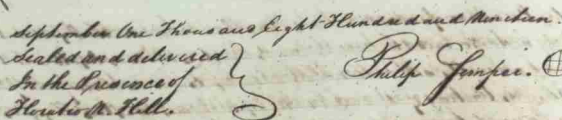 September One Thousand Eight Hundred and Nineteen.
Sealed and delivered
In the Presence of
Horatio N. Hill.
Philip